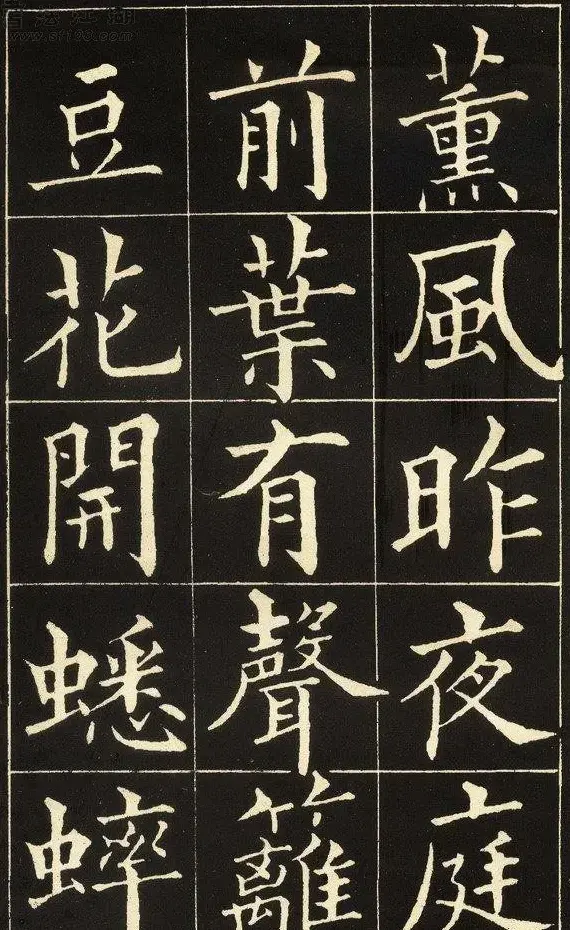 薰風昨夜庭
前葉有聲籬
豆花開蟋蟀
书法江湖
www.sf108.com